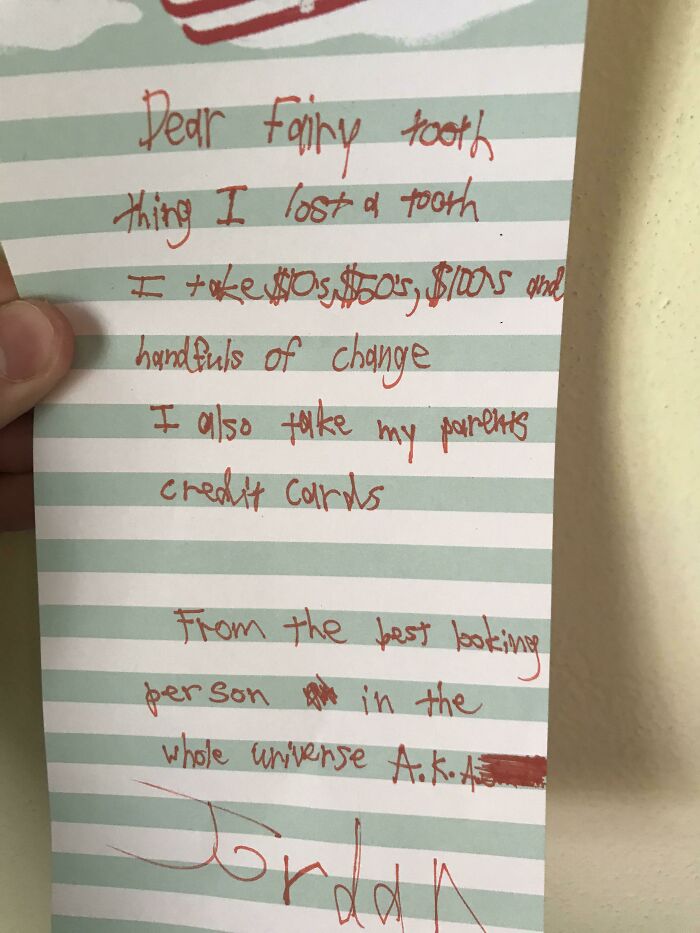 Dear Fairy tooth
thing I lost a tooth
I take $10's, $50's, $100's and
handfuls of change
I also take my parents
credit cards
From the best looking
person in the
whole universe A.K.A
Jordan